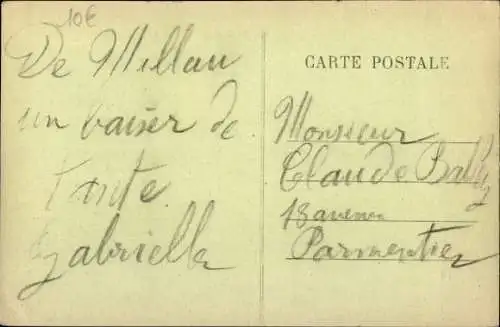 10€
De Millau
un baiser de
Tante
Gabrielle
CARTE POSTALE
Monsieur
Claude Bally
18 avenue
Parmentier